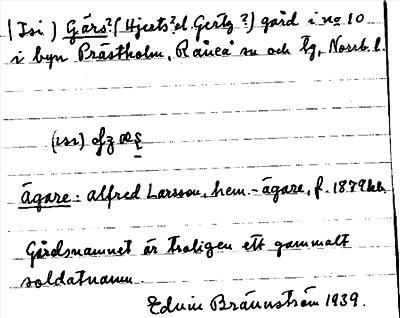 (Isi) Gärs? (Hjerts? el. Gertz?) gård i no 10
i byn Prästholm, Råneå sn och tg, Norrb. l.
Ägare: Alfred Larsson, hem.-ägare, f. 1879
Gårdsnamnet är troligen ett gammalt
soldatnamn.
Edwin Brännström 1939.